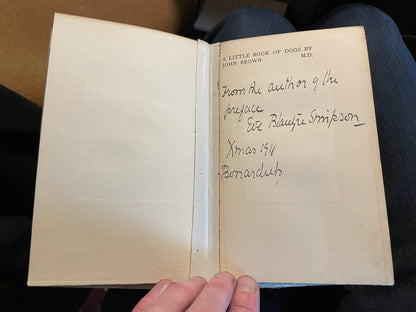 A LITTLE BOOK OF DOGS BY
JOHN BROWN M.D.
From the author of the
preface
Eve Blantyre Simpson
Xmas 1911